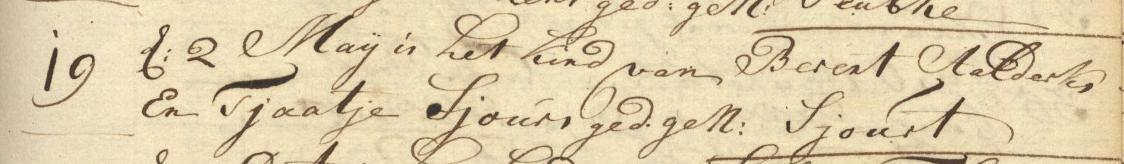 ged: gen: Feubke
19 d: 2 Maÿ is het kind van Berent Aalderks
En Tjaatje Sjours ged: gen: Sjourt